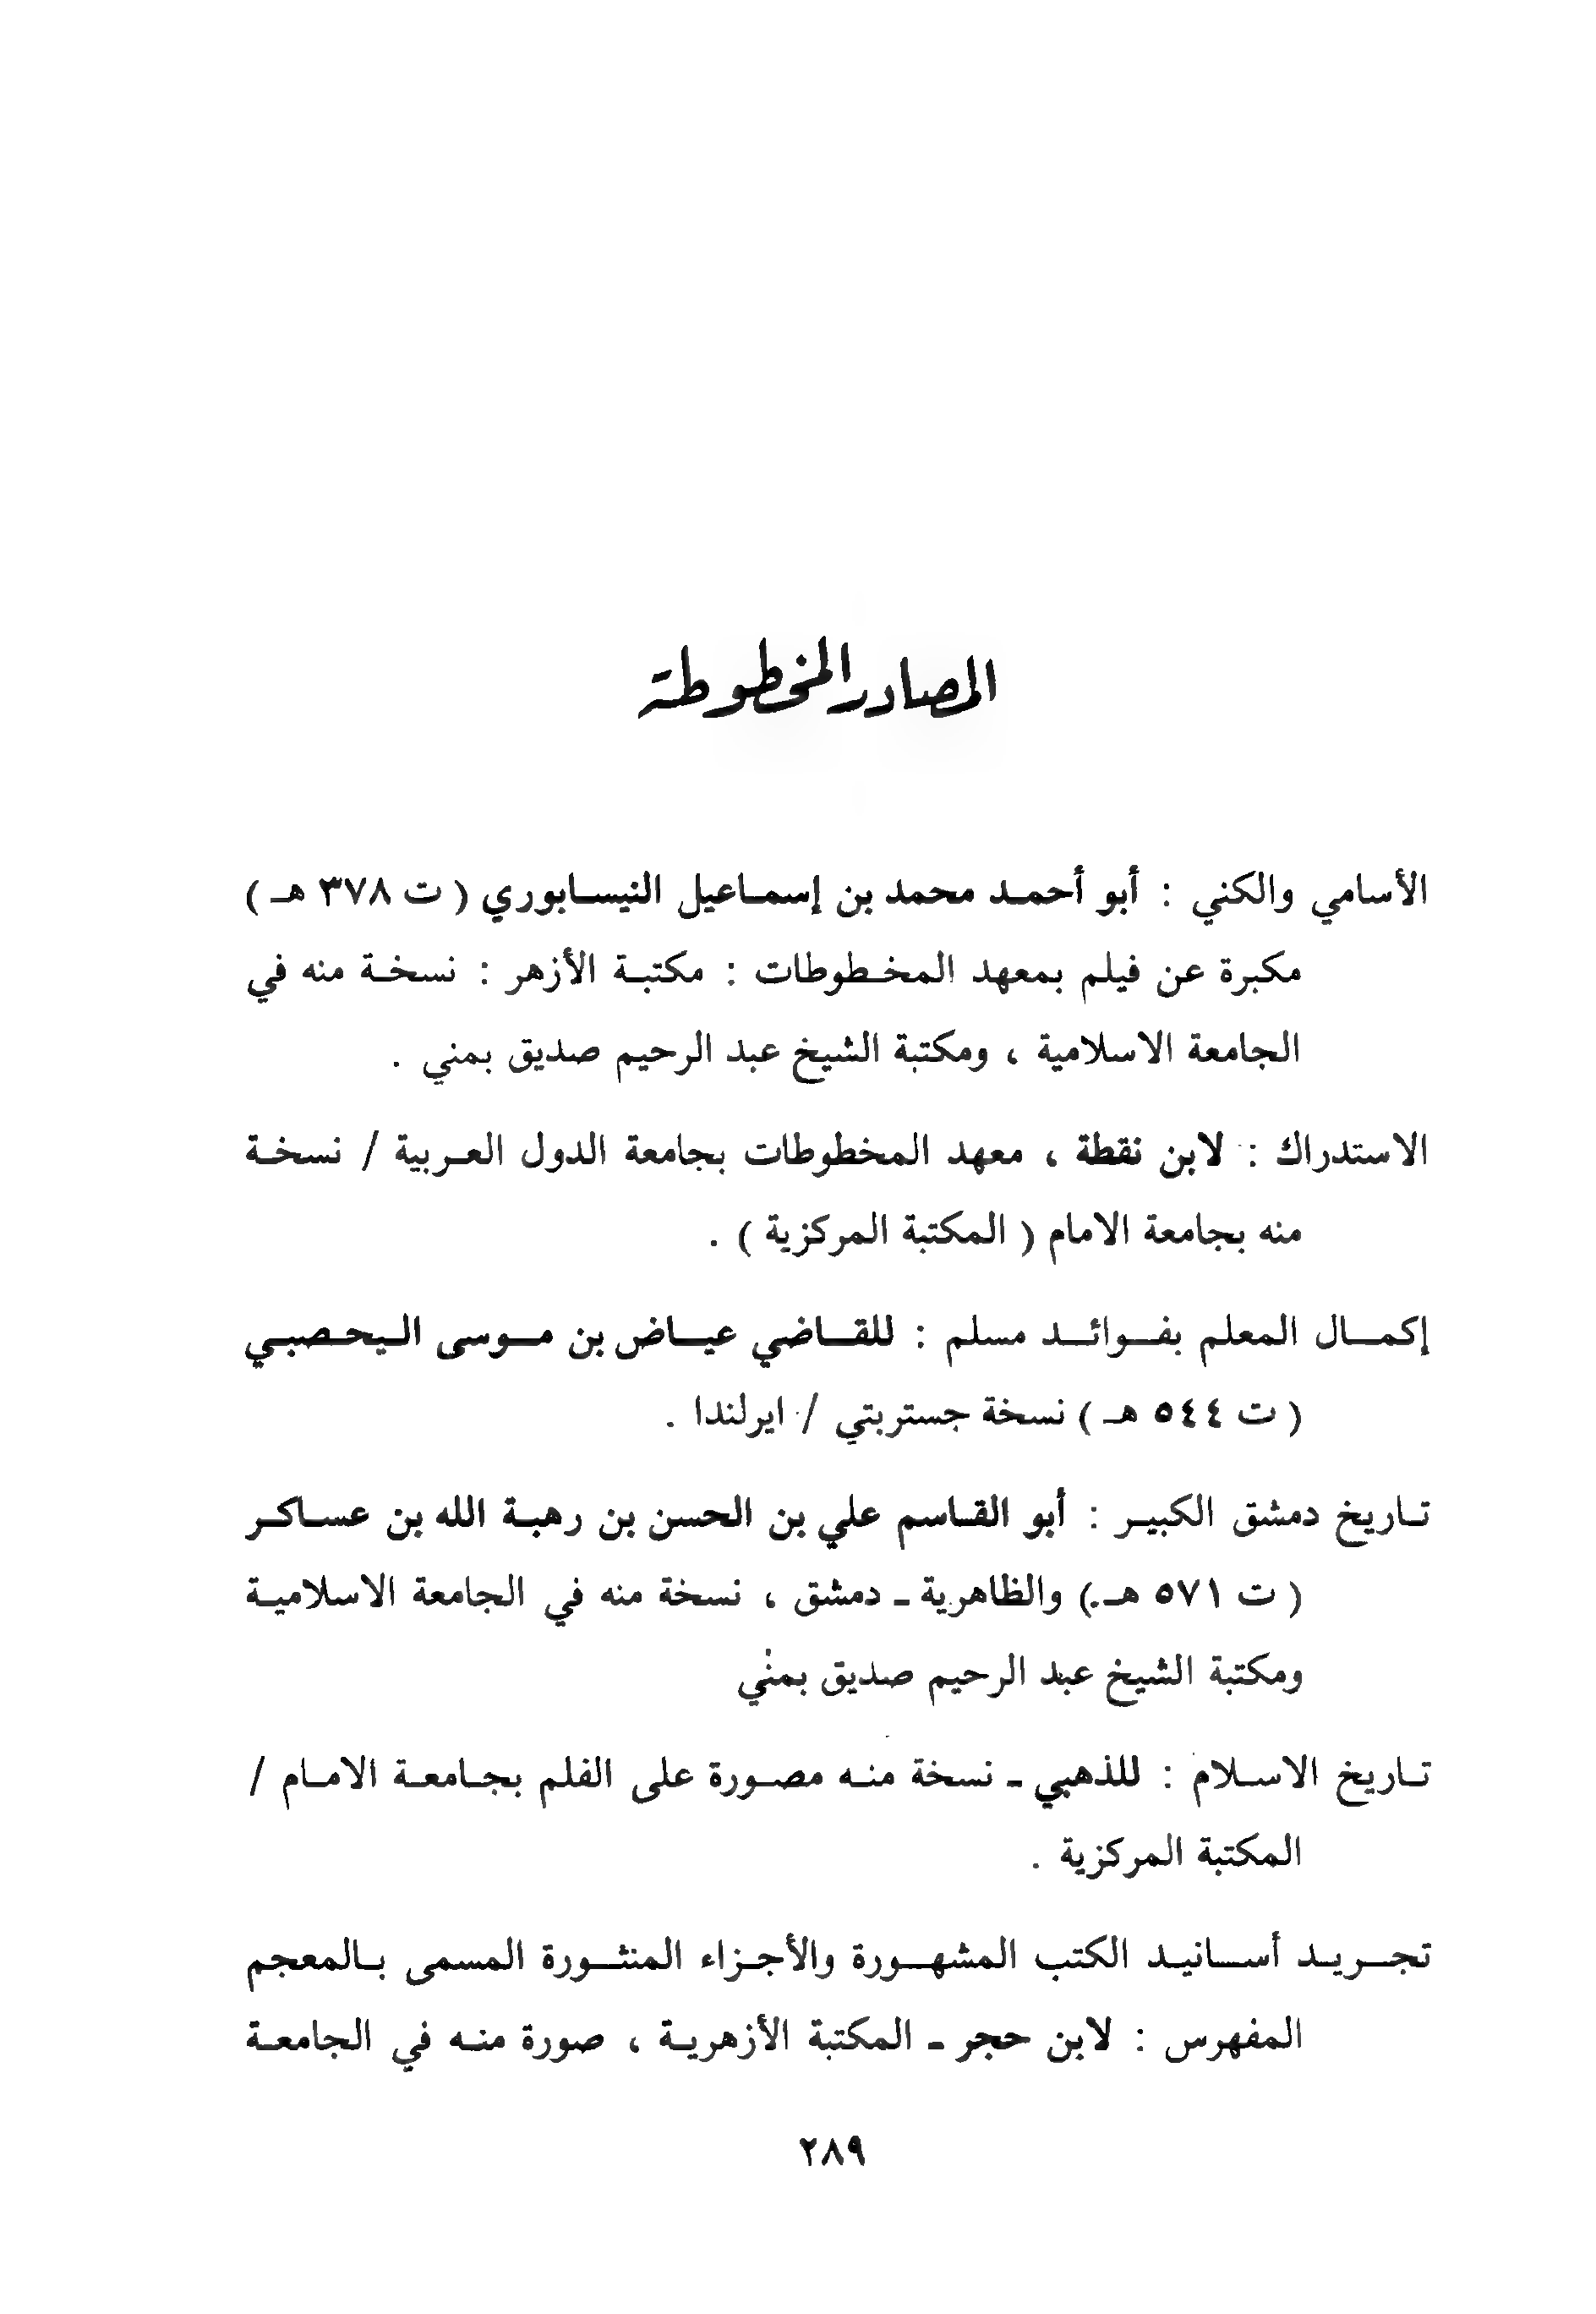 المصادر المخطوطة
الأسامي والكني : أبو أحمد محمد بن إسماعيل النيسابوري ( ت ٣٧٨ هـ )
مكبرة عن فيلم بمعهد المخطوطات : مكتبة الأزهر : نسخة منه في
الجامعة الاسلامية ، ومكتبة الشيخ عبد الرحيم صديق بمني .
الاستدراك : لابن نقطة ، معهد المخطوطات بجامعة الدول العربية / نسخة
منه بجامعة الامام ( المكتبة المركزية ) .
إكمال المعلم بفوائد مسلم : للقاضي عياض بن موسى اليحصبي
( ت ٥٤٤ هـ ) نسخة جستربتي / ايرلندا .
تاريخ دمشق الكبير : أبو القاسم علي بن الحسن بن رهبة الله بن عساكر
( ت ٥٧١ هـ.) والظاهرية ـ دمشق ، نسخة منه في الجامعة الاسلامية
ومكتبة الشيخ عبد الرحيم صديق بمني
تاريخ الاسلام : للذهبي ـ نسخة منه مصورة على الفلم بجامعة الامام /
المكتبة المركزية .
تجريد أسانيد الكتب المشهورة والأجزاء المنثورة المسمى بالمعجم
المفهرس : لابن حجر ـ المكتبة الأزهرية ، صورة منه في الجامعة
٢٨٩